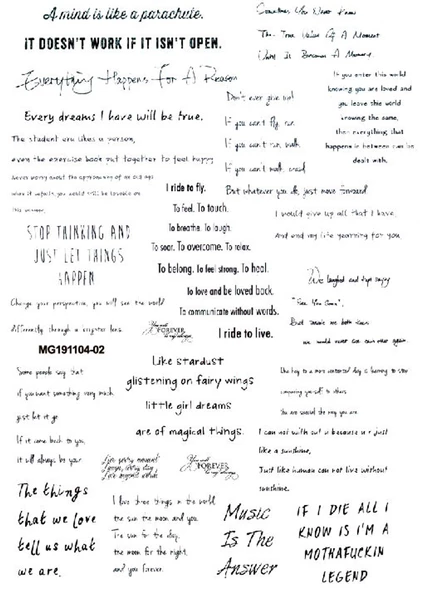 A mind is like a parachute.
IT DOESN'T WORK IF IT ISN'T OPEN.
Sometimes You Never Know
The True Value Of A Moment
Until It Becomes A Memory
Everything Happens For A Reason
If you enter this world
knowing you are loved and
you leave this world
knowing the same,
then everything that
happens in between can be
dealt with.
Don't ever give up!
If you can't fly, run
If you can't run, walk
If you can't walk, crawl
But whatever you do, just move forward
Every dreams I have will be true.
The student era likes a person,
even the exercise book put together to feel happy
I ride to fly.
To feel. To touch.
To breathe. To laugh.
To soar. To overcome. To relax.
To belong. To feel strong. To heal.
To love and be loved back.
To communicate without words.
I ride to live.
I would give up all that I have,
And end my life yearning for you
STOP THINKING AND
JUST LET THINGS
HAPPEN
Change your perspective, you will see the world
differently through a
We laughed and kept saying
"See You Soon",
But inside we both knew
we would never see each other again.
You will
FOREVER
be my always
MG191104-02
Some people say that
if you want something very much,
just let it go
If it came back to you,
it will always be your
Like stardust
glistening on fairy wings
little girl dreams
are of magical things.
The key to a more contented day is learning to stop
comparing yourself to others
You are special the way you are
I can not with out u because u r just
like a sunshine,
Just like human can not live without
sunshine.
Live every moment
Laugh every day
Love beyond words
You will
FOREVER
be my always
The things
that we love
tell us what
we are.
I love three things in the world
the sun the moon and you.
The sun for the day,
the moon for the night,
and you forever.
Music
Is The
Answer
IF I DIE ALL I
KNOW IS I'M A
MOTHAFUCKIN
LEGEND